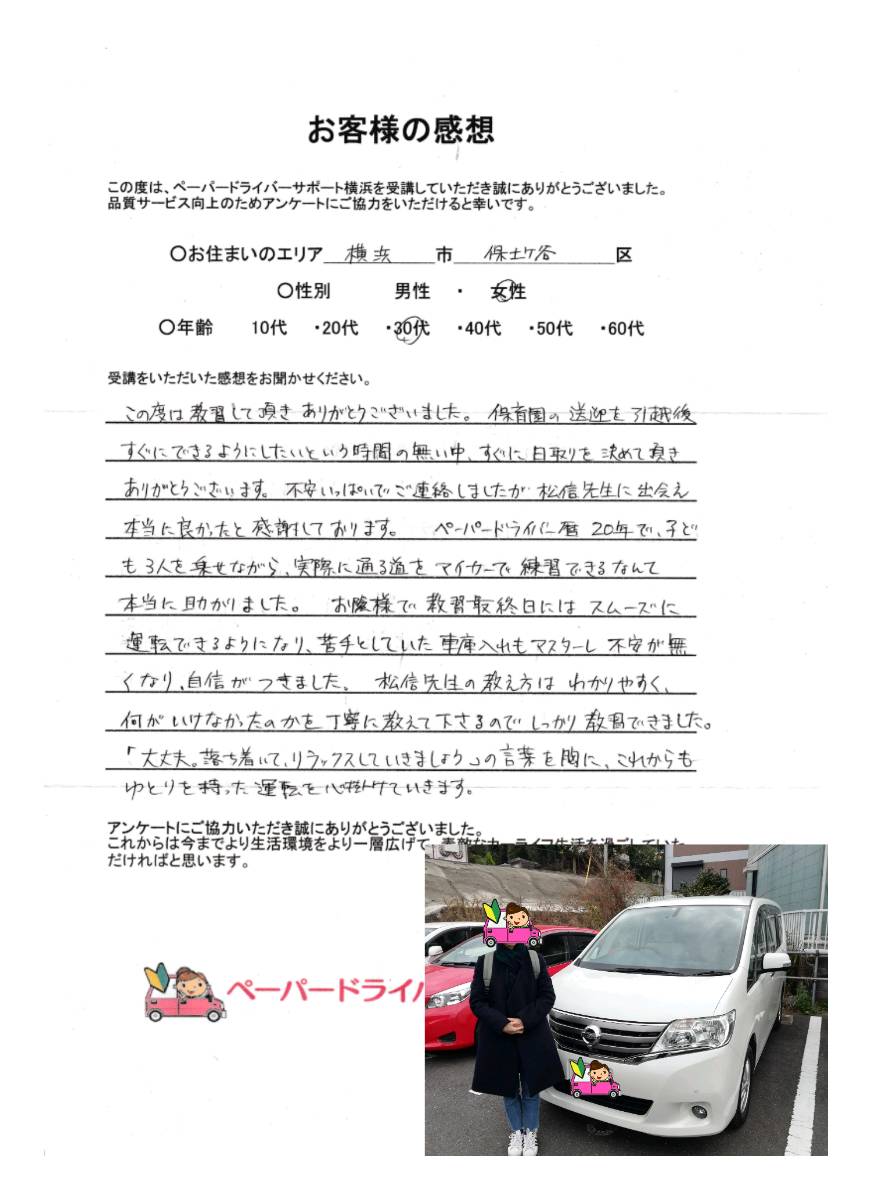 お客様の感想
この度は、ペーパードライバーサポート横浜を受講していただき誠にありがとうございました。
品質サービス向上のためアンケートにご協力をいただけると幸いです。
〇お住まいのエリア 横浜 市 保土ケ谷 区
〇性別 男性 ・ 女性
〇年齢 10代 ・20代 ・30代 ・40代 ・50代 ・60代
受講をいただいた感想をお聞かせください。
この度は教習して頂きありがとうございました。 保育園の送迎を引越後
すぐにできるようにしたいという時間の無い中、すぐに日取りを決めて頂き
ありがとうございます。不安いっぱいでご連絡しましたが松信先生に出会え
本当に良かったと感謝しております。 ペーパードライバー暦20年で、子ど
も3人を乗せながら、実際に通る道をマイカーで練習できるなんて
本当に助かりました。 お陰様で教習最終日にはスムーズに
運転できるようになり、苦手としていた車庫入れもマスターし不安が無
くなり、自信がつきました。 松信先生の教え方はわかりやすく、
何がいけなかったのかを丁寧に教えて下さるのでしっかり教習できました。
「大丈夫。落ち着いて、リラックスしていきましょう」の言葉を胸に、これからも
ゆとりを持った運転を心掛けていきます。
アンケートにご協力いただき誠にありがとうございました。
これからは今までより生活環境をより一層広げて、素敵なカーライフ生活を過ごしていた
だければと思います。
ペーパードライバ